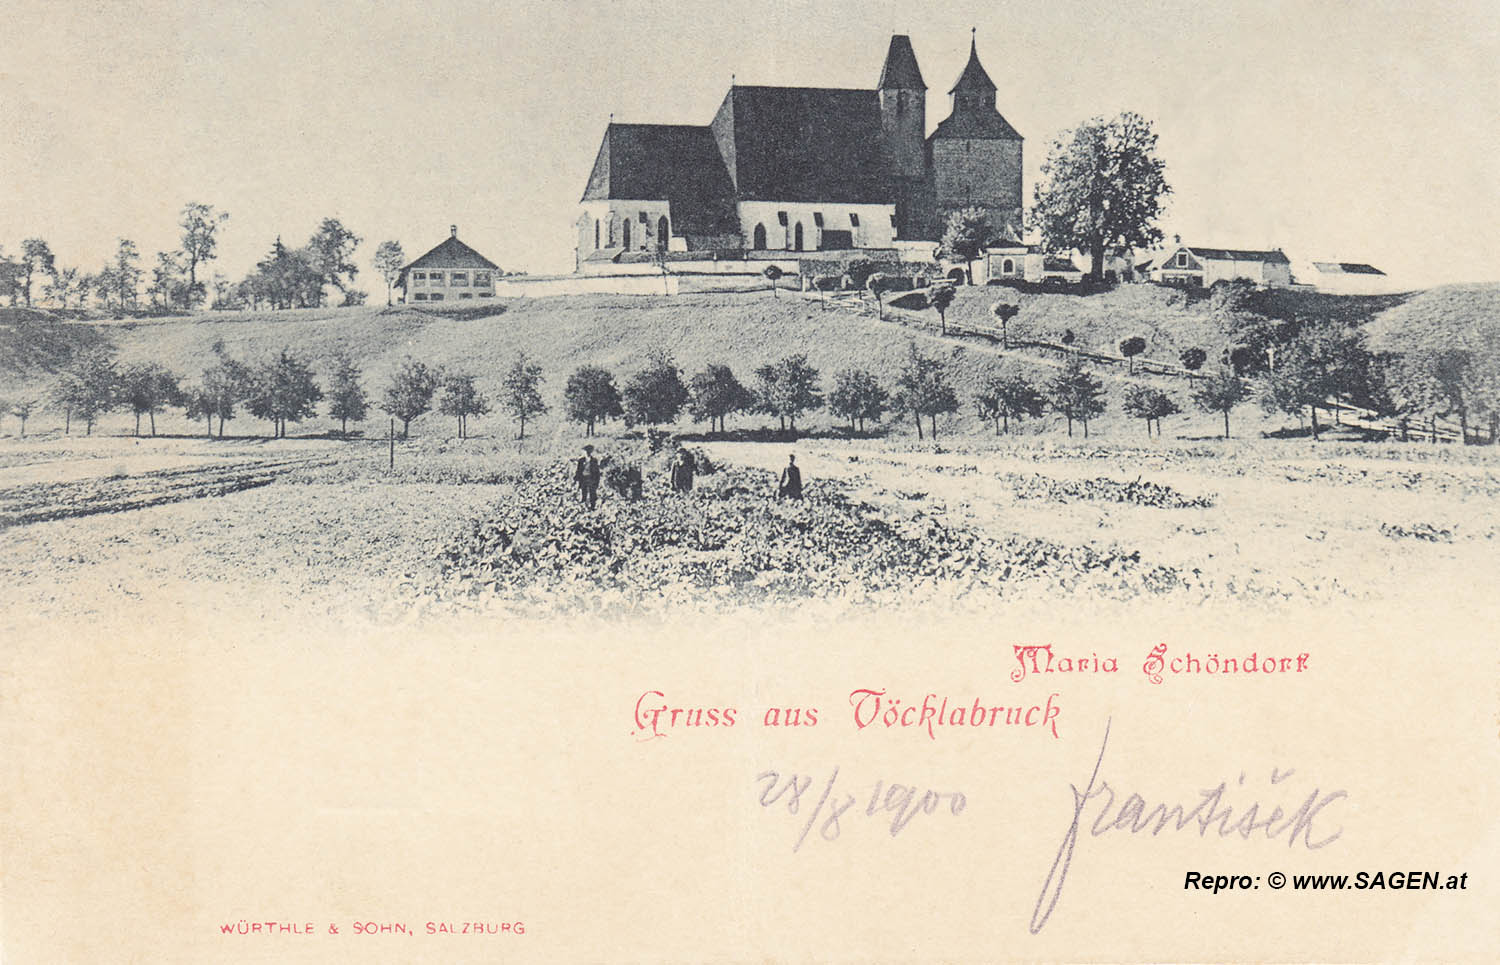 Maria Schöndorf
Gruss aus Vöcklabruck
28/8 1900 František
Repro: © www.SAGEN.at
WÜRTHLE & SOHN, SALZBURG